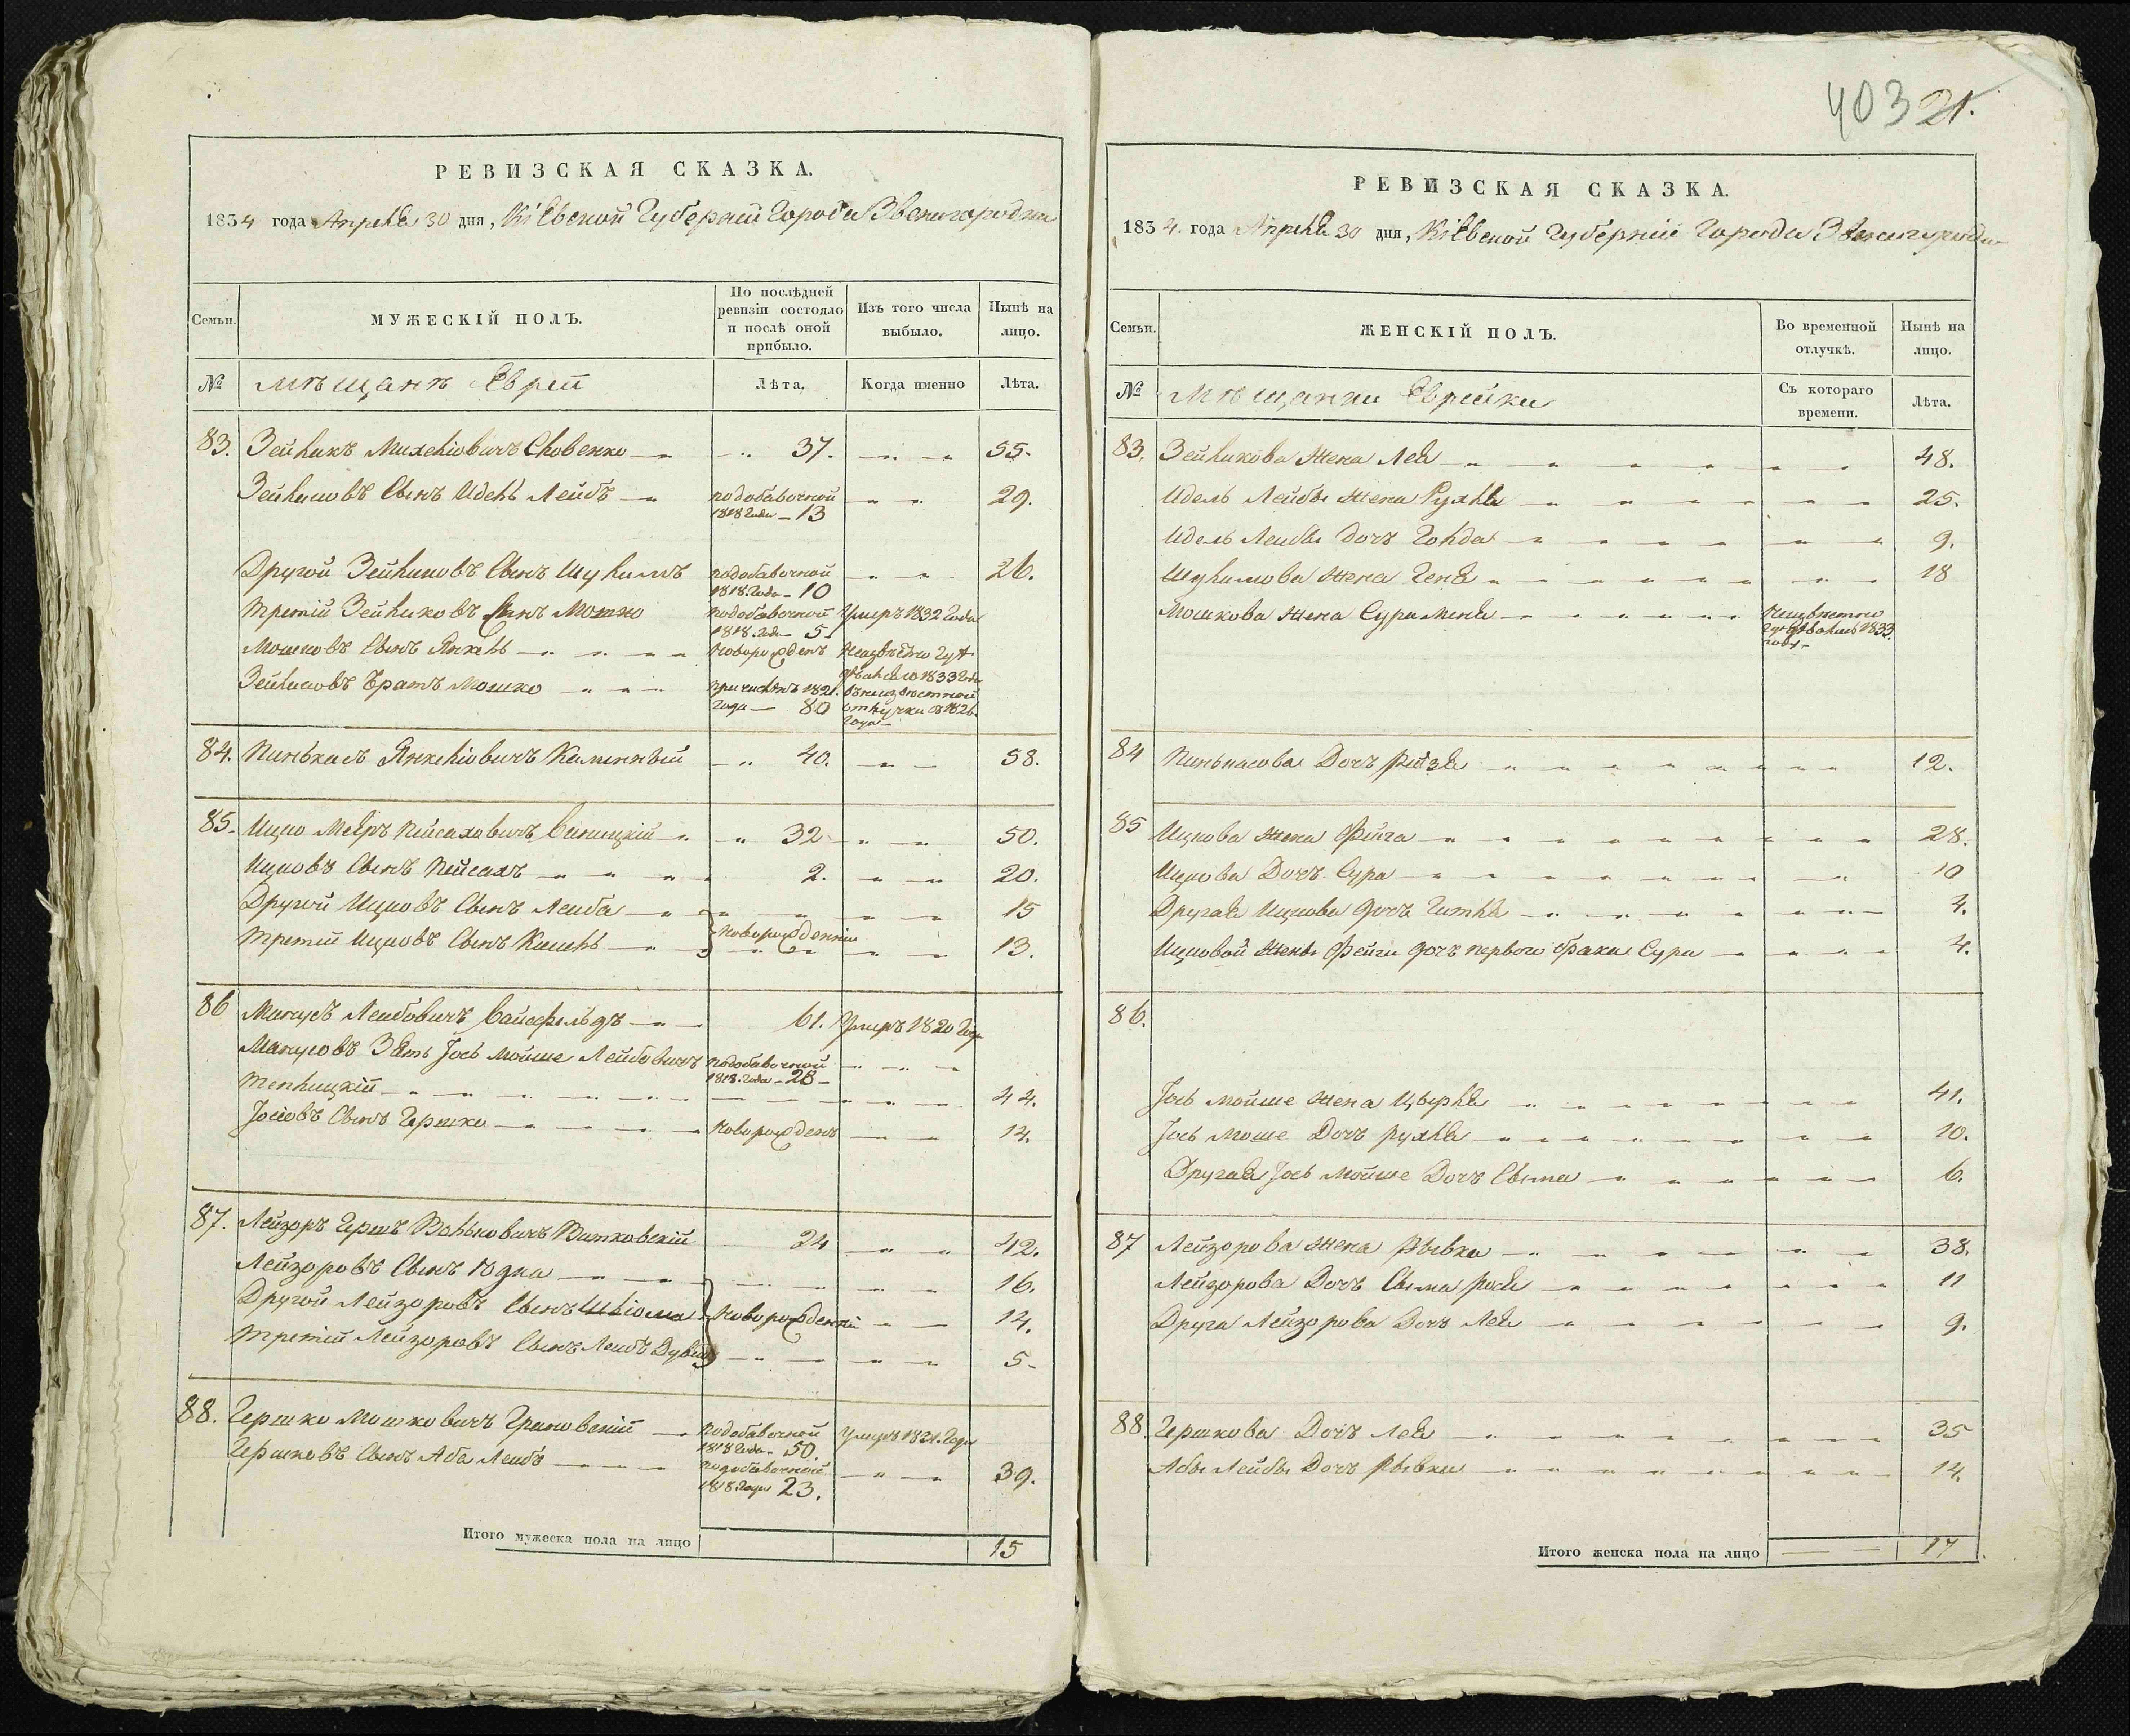 РЕВИЗСКАЯ СКАЗКА.
1834 года Апреля 30 дня, Кіевской Губерніи Города Звенигородки
Семьи.
МУЖЕСКІЙ ПОЛЪ.
По послѣдней ревизіи состояло и послѣ оной прибыло.
Изъ того числа выбыло.
Нынѣ на лицо.
№
Мѣщанъ Еврей
Лѣта.
Когда именно
Лѣта.
83. Зейликъ Михеліовичъ Словенко 37. 55.
Зейликовъ Сынъ Идель Лейбъ подобавочной 1818 Года 13 29.
Другой Зейликовъ Сынъ Шулимъ подобавочной 1818 Года 10 26.
Третій Зейликовъ Сынъ Мошко подобавочной 1818 Года 5 Умеръ 1832 Года
Мошковъ Сынъ Янкель Новорожденъ Неизвѣстно где девался 1833 Года
Зейликовъ Братъ Мошко причисленъ 1821. Года 80 в неизвестной отлучки с 1826 Года
84. Пинькасъ Янкеліовичъ Каминный 40. 58.
85. Ицко Мееръ Пейсаховичъ Синицкій 32 50.
Ицковъ Сынъ Пейсахъ 2. 20.
Другой Ицковъ Сынъ Лейба 15
Новорожденніи
Третій Ицковъ Сынъ Кисель 13.
86 Манусъ Лейбовичъ Вайсфельдъ 61. Умеръ 1820 Года
Манусовъ Зять Іось Мойше Лейбовичъ подобавочной 1818. Года 28
Теплицкій 44.
Іосіовъ Сынъ Гершко Новорожденъ 14.
87. Лейзоръ Гершъ Вольковичъ Витковскій 24 42.
Лейзоровъ Сынъ Юдка 16.
Другой Лейзоровъ Сынъ Шліома Новорожденніи 14.
Третій Лейзоровъ Сынъ Лейбъ Дувидъ 5
88. Гершко Мошковичъ Грановскій подобавочной 1818 Года 50. Умеръ 1821. Года
Гершковъ Сынъ Аба Лейбъ подобавочной 1818 Года 23. 39.
Итого мужеска пола на лицо 15
403 21.
РЕВИЗСКАЯ СКАЗКА.
1834. года Апреля 30 дня, Кіевской Губерніи Города Звенигородки
Семьи.
ЖЕНСКІЙ ПОЛЪ.
Во временной отлучкѣ.
Нынѣ на лицо.
№
Мѣщанки Еврейки
Съ котораго времени.
Лѣта.
83. Зейликова Жена Лея 48.
Идель Лейбы Жена Рухля 25.
Идель Лейбы Дочъ Голда 9.
Шулимова Жена Геня 18
Мошкова Жена СураМеня Неизвестно где девалась 1833 года
84 Пинькасова Дочъ Ройзя 12.
85 Ицкова Жена Фейга 28.
Ицкова Дочъ Сура 10
Другая Ицкова дочъ Гитля 4.
Ицковой Жены Фейги дочъ первого брака Сура 4.
86.
Іось Мойше Жена Цырля 41.
Іось Моше Дочъ Рухля 10.
Другая Іось Мойше Дочъ Сыма 6.
87 Лейзорова Жена Рывка 38.
Лейзорова Дочъ Сыма Рося 11
Друга Лейзорова Дочъ Лея 9.
88. Гершкова Дочъ Лея 35
Абы Лейбы Дочъ Рывка 14.
Итого женска пола на лицо 17